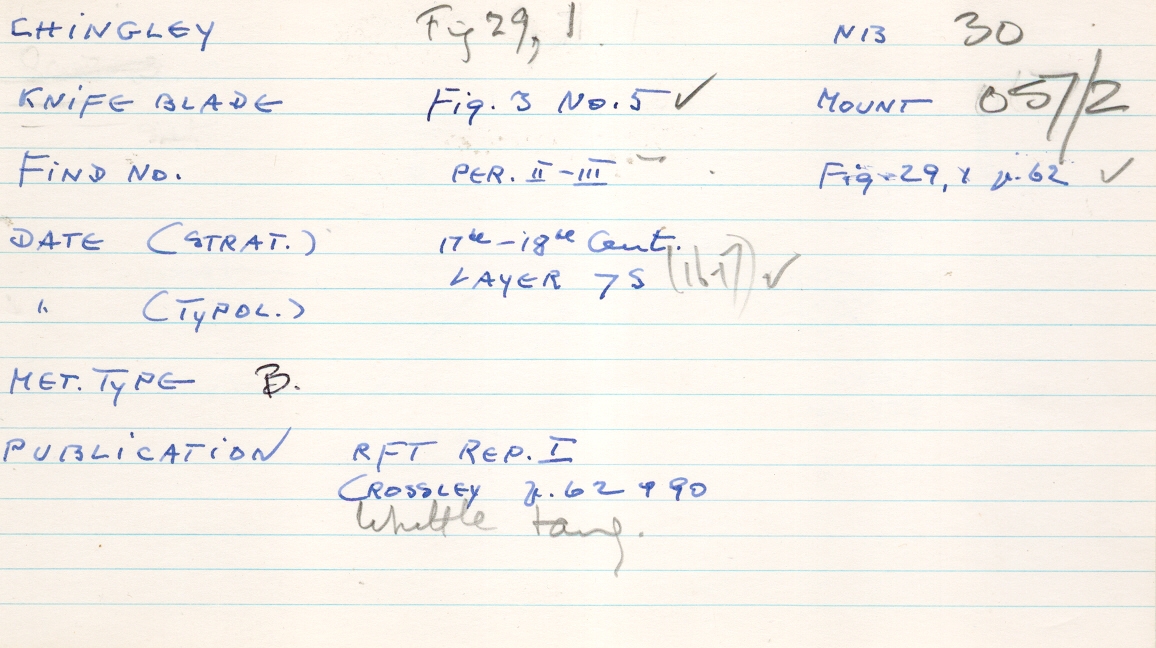 CHINGLEY Fig 29, 1. N13 30
KNIFE BLADE Fig. 3 No. 5 ✓ MOUNT 057/2
FIND NO. PER. II-III Fig-29, 1 p.62 ✓
DATE (STRAT.) 17th-18th Cent.
LAYER 7S (16-17) ✓
" (TYPOL.)
MET. TYPE B.
PUBLICATION RFT REP. I
CROSSLEY p.62 & 90
Whittle tang.